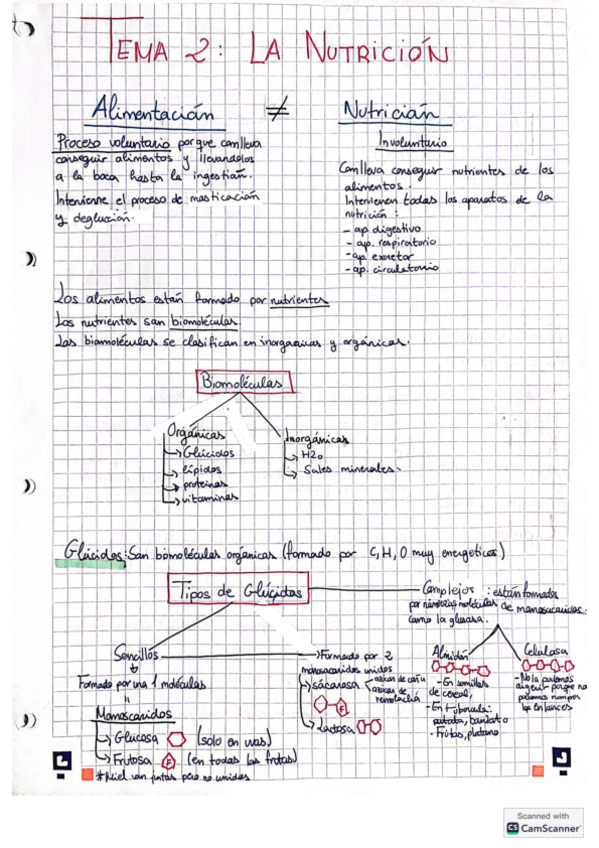 TEMA 2: LA NUTRICIÓN
Alimentación ≠ Nutrición
Proceso voluntario porque conlleva
conseguir alimentos y llevandolos
a la boca hasta la ingestión.
Interviene el proceso de masticación
y deglución.
Involuntario
Conlleva conseguir nutrientes de los
alimentos.
Intervienen todos los aparatos de la
nutrición:
- ap digestivo
- ap. respiratorio
- ap. excretor
- ap. circulatorio
Los alimentos están formado por nutrientes
Los nutrientes son biomoléculas.
Las biomoléculas se clasifican en inorganicas y orgánicas.
Biomoléculas
Orgánicas
Glúcidos
lípidos
proteinas
vitaminas
Inorgánicas
H2O
Sales minerales.
Glúcidos: San biomoléculas orgánicas (formado por C, H, O muy energeticos)
Tipos de Glúcidos
Complejos: están formados
por moléculas de monosacaridos
como la glucosa.
Sencillos
Formado por una 1 moléculas
Monosacaridos
Glucosa (solo en uvas)
Frutosa F (en todas las frutas)
*Miel van juntas pero no unidas
Formado por 2
monosacaridos unidos
sacarosa
azucar de caña
azucar de remolacha
F
Lactosa
Almidón
- En semillas
de cereal,
- En tuberculo:
patata, boniato
- Frutas, platano
Celulosa
- No la podemos
digerir porque no
podemos romper
los enlaces
Scanned with
CS CamScanner